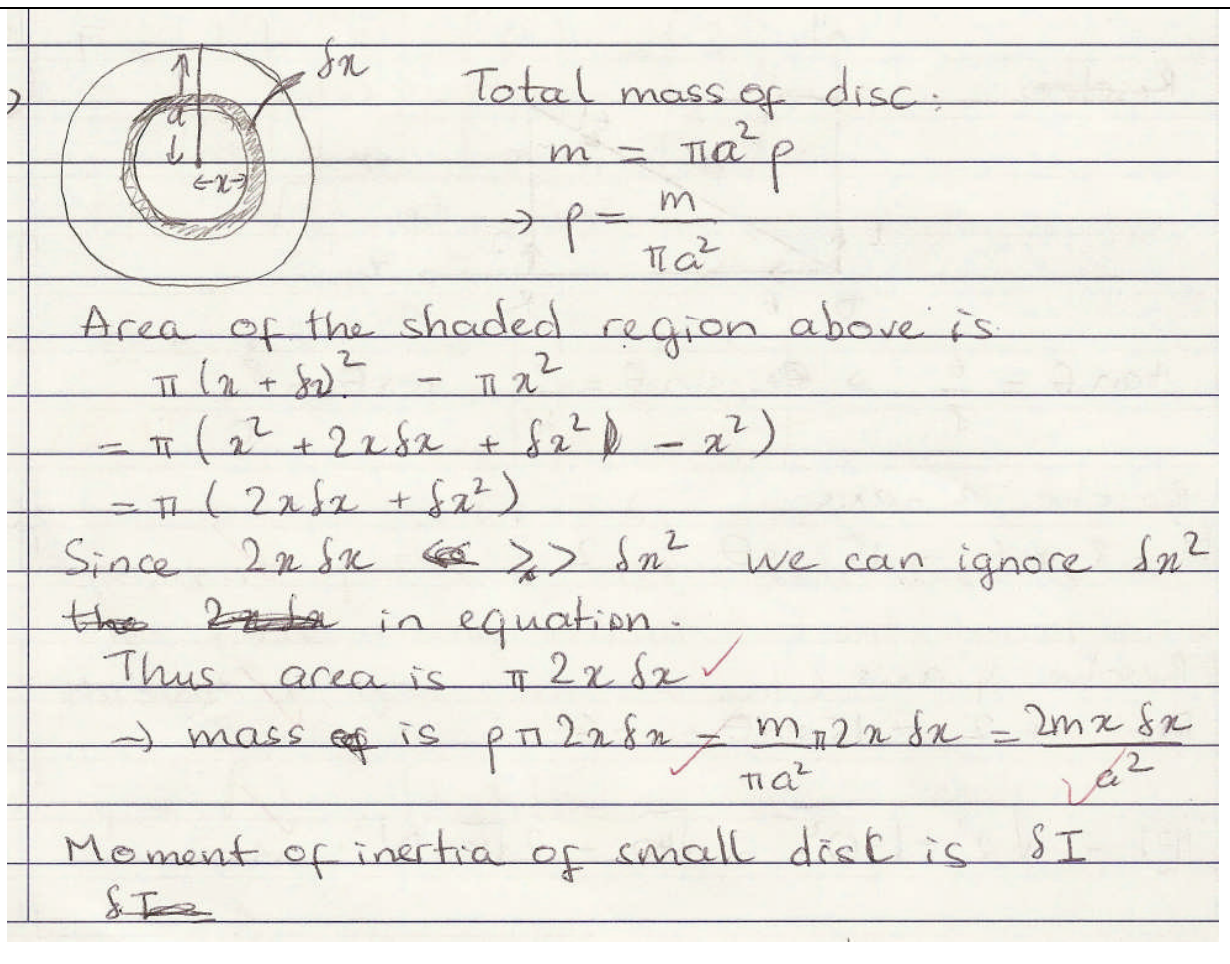 δx
a
x
Total mass of disc:
m = πa²ρ
→ ρ = m/πa²
Area of the shaded region above is
π(x + δx)² - πx²
= π(x² + 2xδx + δx² - x²)
= π(2xδx + δx²)
Since 2xδx >> δx² we can ignore δx²
in equation.
Thus area is π2xδx ✓
→ mass is ρπ2xδx = m/πa² π2xδx = 2mxδx/a²
Moment of inertia of small disc is δI